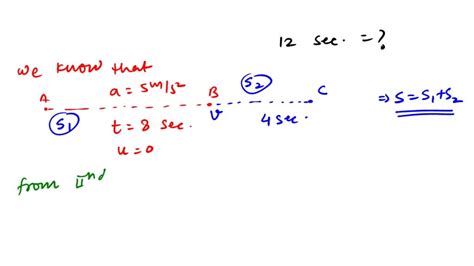 12 sec. = ?
we know that
a = 5 m/s²
A B S2 C
S1 t = 8 sec. V 4 sec. ⇒ S = S1 + S2
u = 0
from IInd